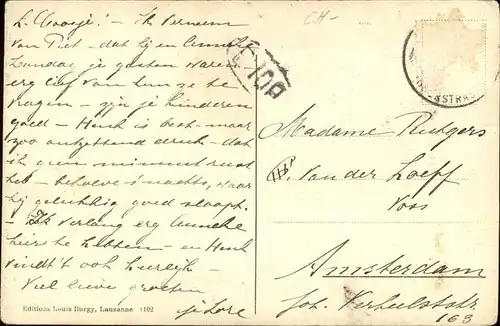 L. Noosje! - Ik verneem
van Piet - dat hij en Anneke
Zondag je gasten waren
erg lief van hun ze te
vragen - zijn je kinderen
goed - Henk is best - maar
zoo ontzettend druk - dat
ik geen minuut rust
heb - behalve 's nachts, waar
hij gelukkig goed slaapt.
- Ik verlang erg Anneke
hier te hebben - en Henk
vindt 't ook heerlijk -
Veel lieve groeten
je Lore
Editions Louis Burgy, Lausanne 1102
CH-
STRA
Madame Rutgers
Van der Loeff
Voss
Amsterdam
Joh. Verhulststr
163